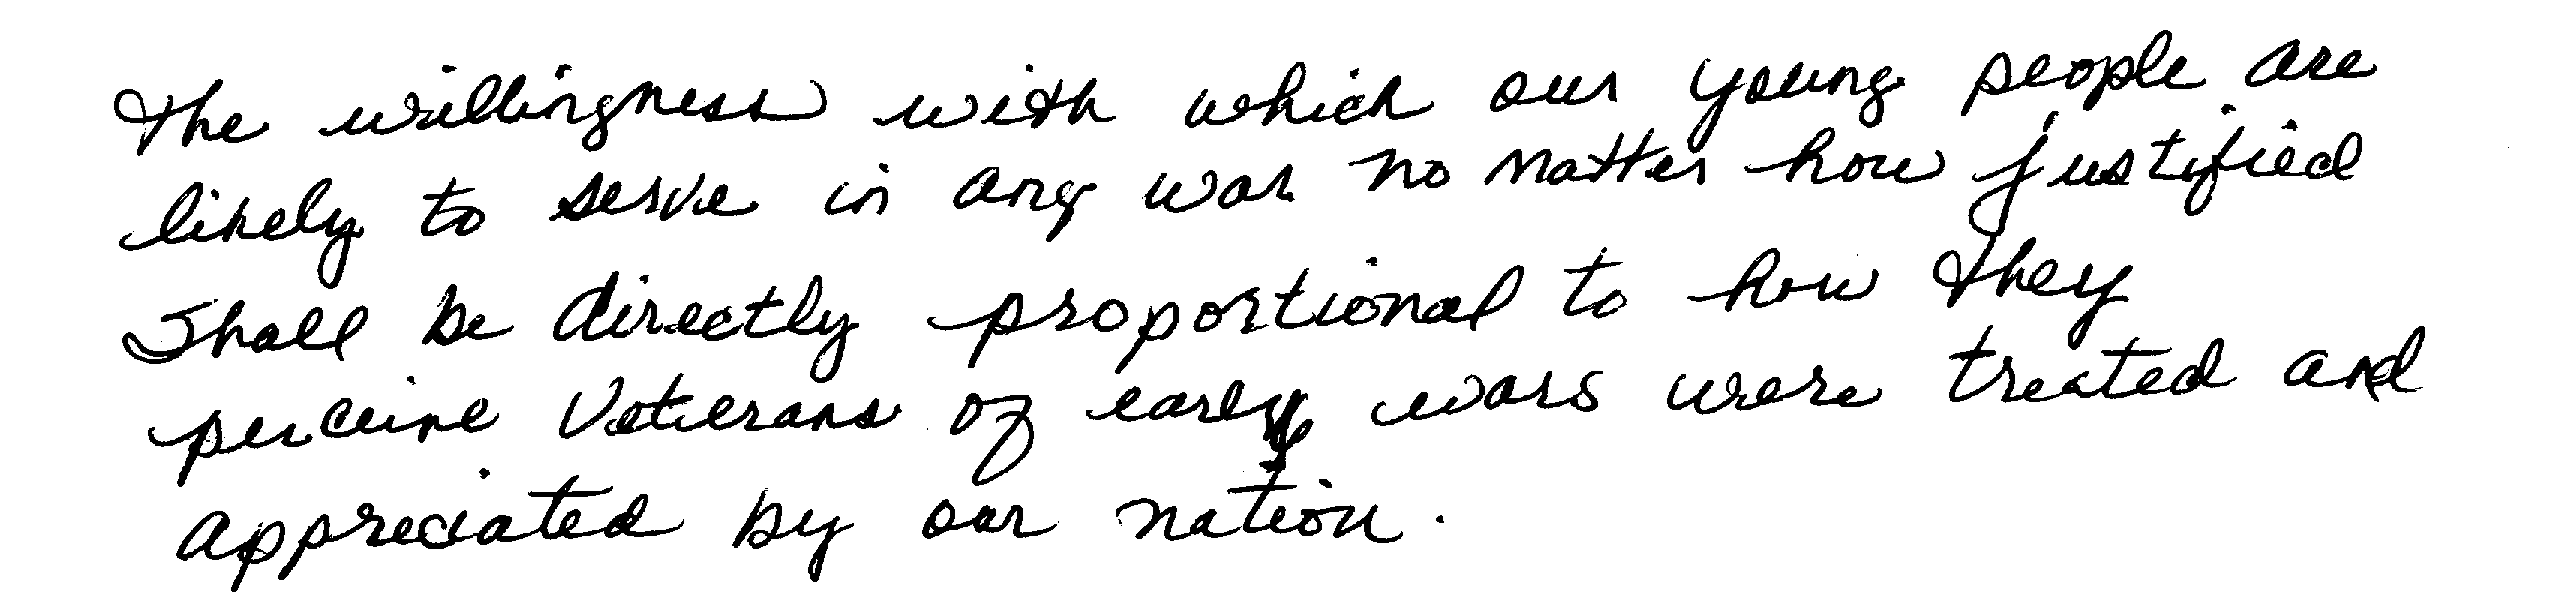 The willingness with which our young people are
likely to serve in any war no matter how justified
Shall be directly proportional to how they
perceive Veterans of early wars were treated and
appreciated by our nation.